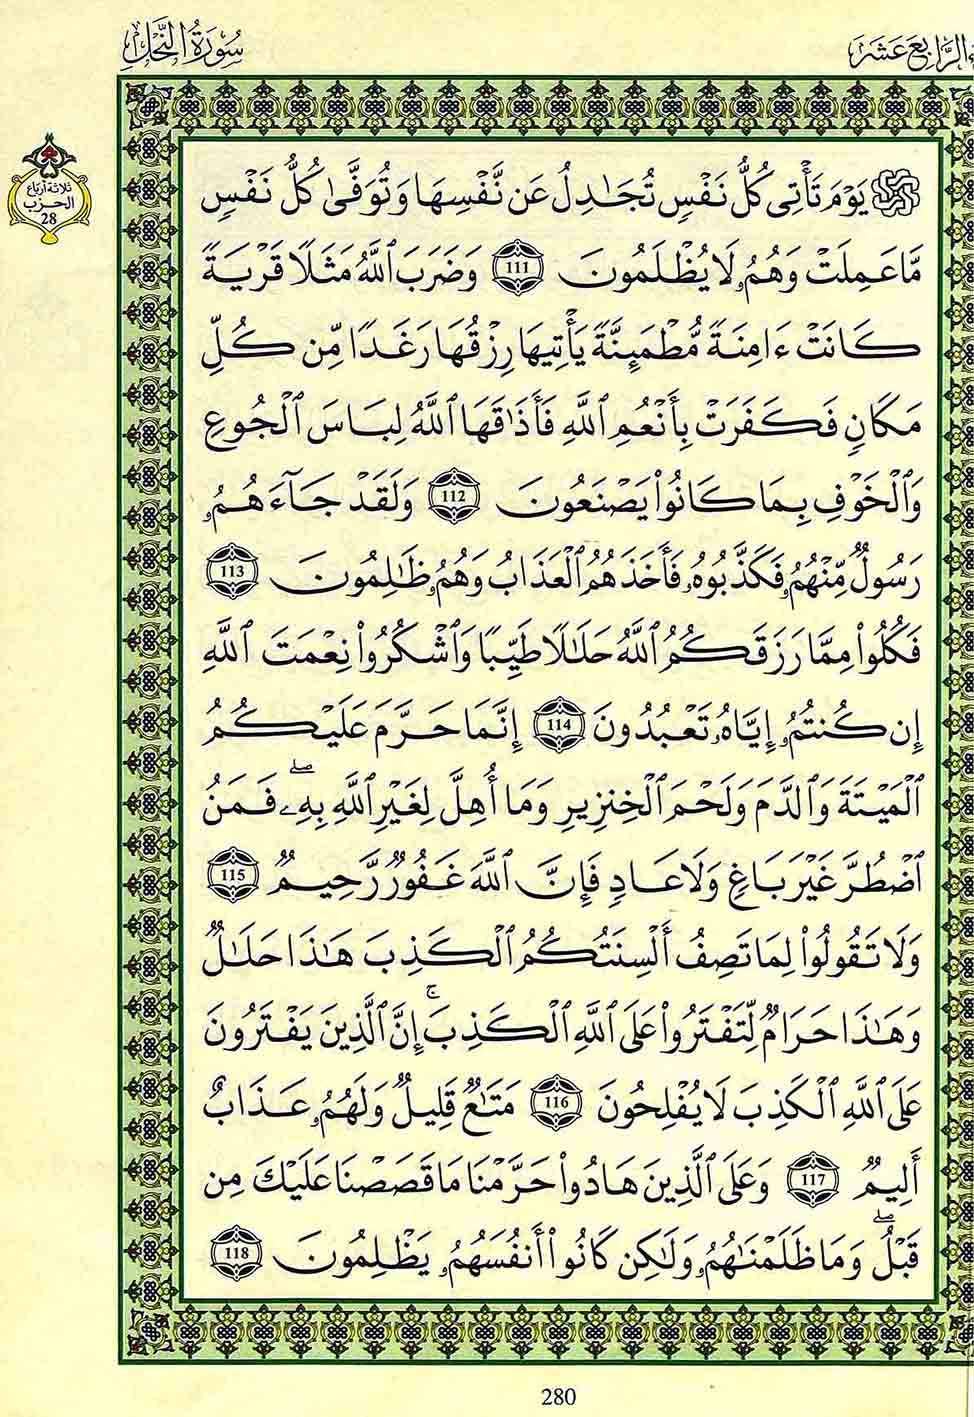 الرَّابِعَ عَشَرَ
سُورَةُ النَّحْلِ
ثلاثة أرباع
الحزب
28
۞ يَوْمَ تَأْتِى كُلُّ نَفْسٍ تُجَٰدِلُ عَن نَّفْسِهَا وَتُوَفَّىٰ كُلُّ نَفْسٍ
مَّا عَمِلَتْ وَهُمُۥ لَا يُظْلَمُونَ 111 وَضَرَبَ ٱللَّهُ مَثَلًا قَرْيَةً
كَانَتْ ءَامِنَةً مُّطْمَئِنَّةً يَأْتِيهَا رِزْقُهَا رَغَدًا مِّن كُلِّ
مَكَانٍ فَكَفَرَتْ بِأَنْعُمِ ٱللَّهِ فَأَذَٰقَهَا ٱللَّهُ لِبَاسَ ٱلْجُوعِ
وَٱلْخَوْفِ بِمَا كَانُوا۟ يَصْنَعُونَ 112 وَلَقَدْ جَآءَهُمُۥ
رَسُولٌ مِّنْهُمُۥ فَكَذَّبُوهُۥ فَأَخَذَهُمُ ٱلْعَذَابُ وَهُمُۥ ظَٰلِمُونَ 113
فَكُلُوا۟ مِمَّا رَزَقَكُمُ ٱللَّهُ حَلَٰلًا طَيِّبًا وَٱشْكُرُوا۟ نِعْمَتَ ٱللَّهِ
إِن كُنتُمُۥ إِيَّاهُۥ تَعْبُدُونَ 114 إِنَّمَا حَرَّمَ عَلَيْكُمُ
ٱلْمَيْتَةَ وَٱلدَّمَ وَلَحْمَ ٱلْخِنزِيرِ وَمَا أُهِلَّ لِغَيْرِ ٱللَّهِ بِهِۦ ۖ فَمَنُ
ٱضْطُرَّ غَيْرَ بَاغٍ وَلَا عَادٍ فَإِنَّ ٱللَّهَ غَفُورٌ رَّحِيمٌ 115
وَلَا تَقُولُوا۟ لِمَا تَصِفُ أَلْسِنَتُكُمُ ٱلْكَذِبَ هَٰذَا حَلَٰلٌ
وَهَٰذَا حَرَامٌ لِّتَفْتَرُوا۟ عَلَى ٱللَّهِ ٱلْكَذِبَ ۚ إِنَّ ٱلَّذِينَ يَفْتَرُونَ
عَلَى ٱللَّهِ ٱلْكَذِبَ لَا يُفْلِحُونَ 116 مَتَٰعٌ قَلِيلٌ وَلَهُمُۥ عَذَابٌ
أَلِيمٌ 117 وَعَلَى ٱلَّذِينَ هَادُوا۟ حَرَّمْنَا مَا قَصَصْنَا عَلَيْكَ مِن
قَبْلُ ۖ وَمَا ظَلَمْنَٰهُمُۥ وَلَٰكِن كَانُوا۟ أَنفُسَهُمُۥ يَظْلِمُونَ 118
280